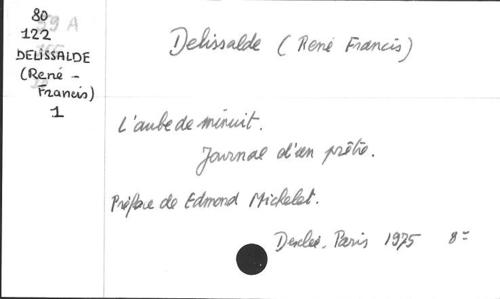 80
122
DELISSALDE
(René -
Francis)
1
Delissalde (René Francis)
L'aube de minuit.
Journal d'un prêtre.
Préface de Edmond Michelet.
Desclée. Paris 1975 8º